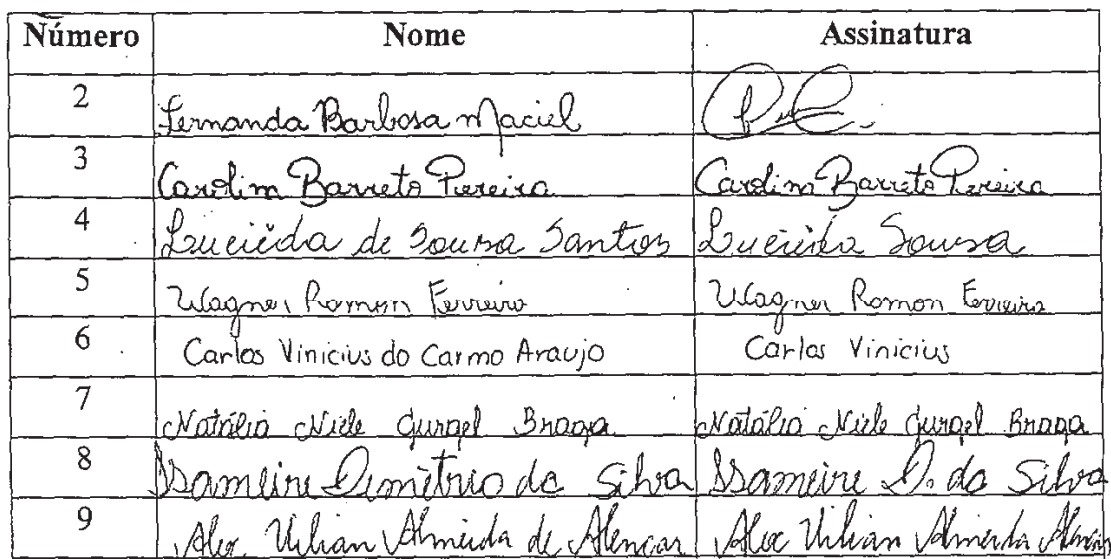 Número Nome Assinatura
2 Fernanda Barbosa Maciel
3 Carolim Barreto Pereira Carolim Barreto Pereira
4 Lucieida de Sousa Santos Lucieida Sousa
5 Wagner Ramon Ferreira Wagner Ramon Ferreira
6 Carlos Vinicius do Carmo Araujo Carlos Vinicius
7 Natália Niele Gurgel Braga Natália Niele Gurgel Braga
8 Demétrio da Silva D. da Silva
9 Alex Vilian Almeida de Alencar Alex Vilian Almeida Alencar